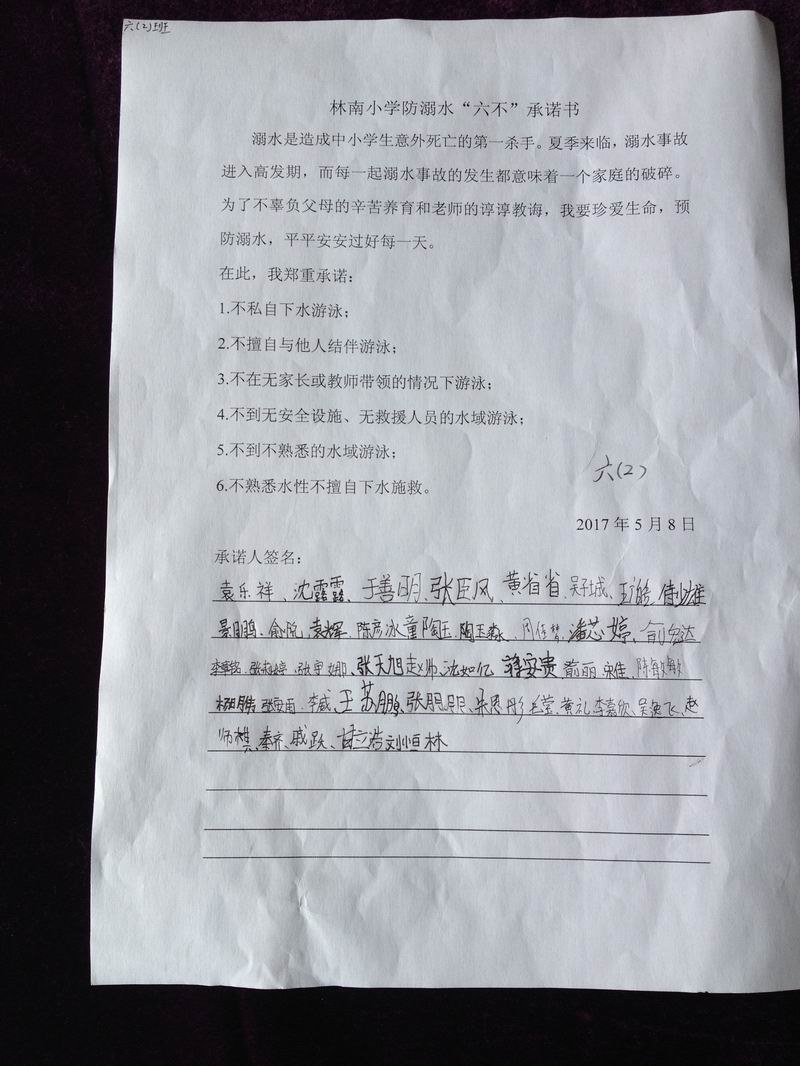 六(2)班
林南小学防溺水“六不”承诺书
溺水是造成中小学生意外死亡的第一杀手。夏季来临，溺水事故
进入高发期，而每一起溺水事故的发生都意味着一个家庭的破碎。
为了不辜负父母的辛苦养育和老师的谆谆教诲，我要珍爱生命，预
防溺水，平平安安过好每一天。
在此，我郑重承诺：
1.不私自下水游泳；
2.不擅自与他人结伴游泳；
3.不在无家长或教师带领的情况下游泳；
4.不到无安全设施、无救援人员的水域游泳；
5.不到不熟悉的水域游泳；
6.不熟悉水性不擅自下水施救。
六(2)
2017 年 5 月 8 日
承诺人签名：
袁乐祥、沈露露、于善明、张臣风、黄省省、
袁辉、陈彦冰、童陶玉、陶玉淼、潘芯婷、
张天旭、赵帅、沈如亿、蒋安贵
李威、王苏鹏、朱恩彤、黄礼、李嘉欣、赵
师棋、秦齐、戚跃、甘立浩、刘恒林